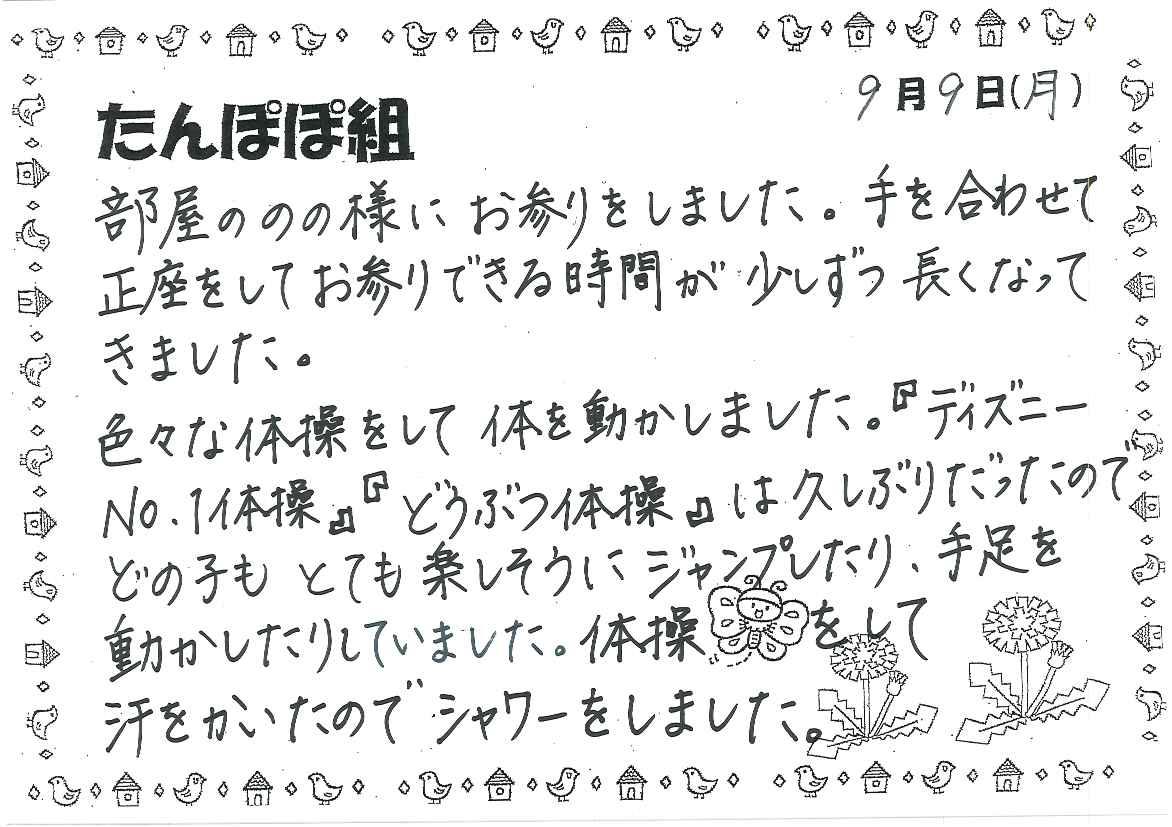 9月9日(月)
たんぽぽ組
部屋ののの様にお参りをしました。手を合わせて
正座をしてお参りできる時間が少しずつ長くなって
きました。
色々な体操をして体を動かしました。『ディズニー
No.1体操』『どうぶつ体操』は久しぶりだったので
どの子もとても楽しそうにジャンプしたり、手足を
動かしたりしていました。体操をして
汗をかいたのでシャワーをしました。